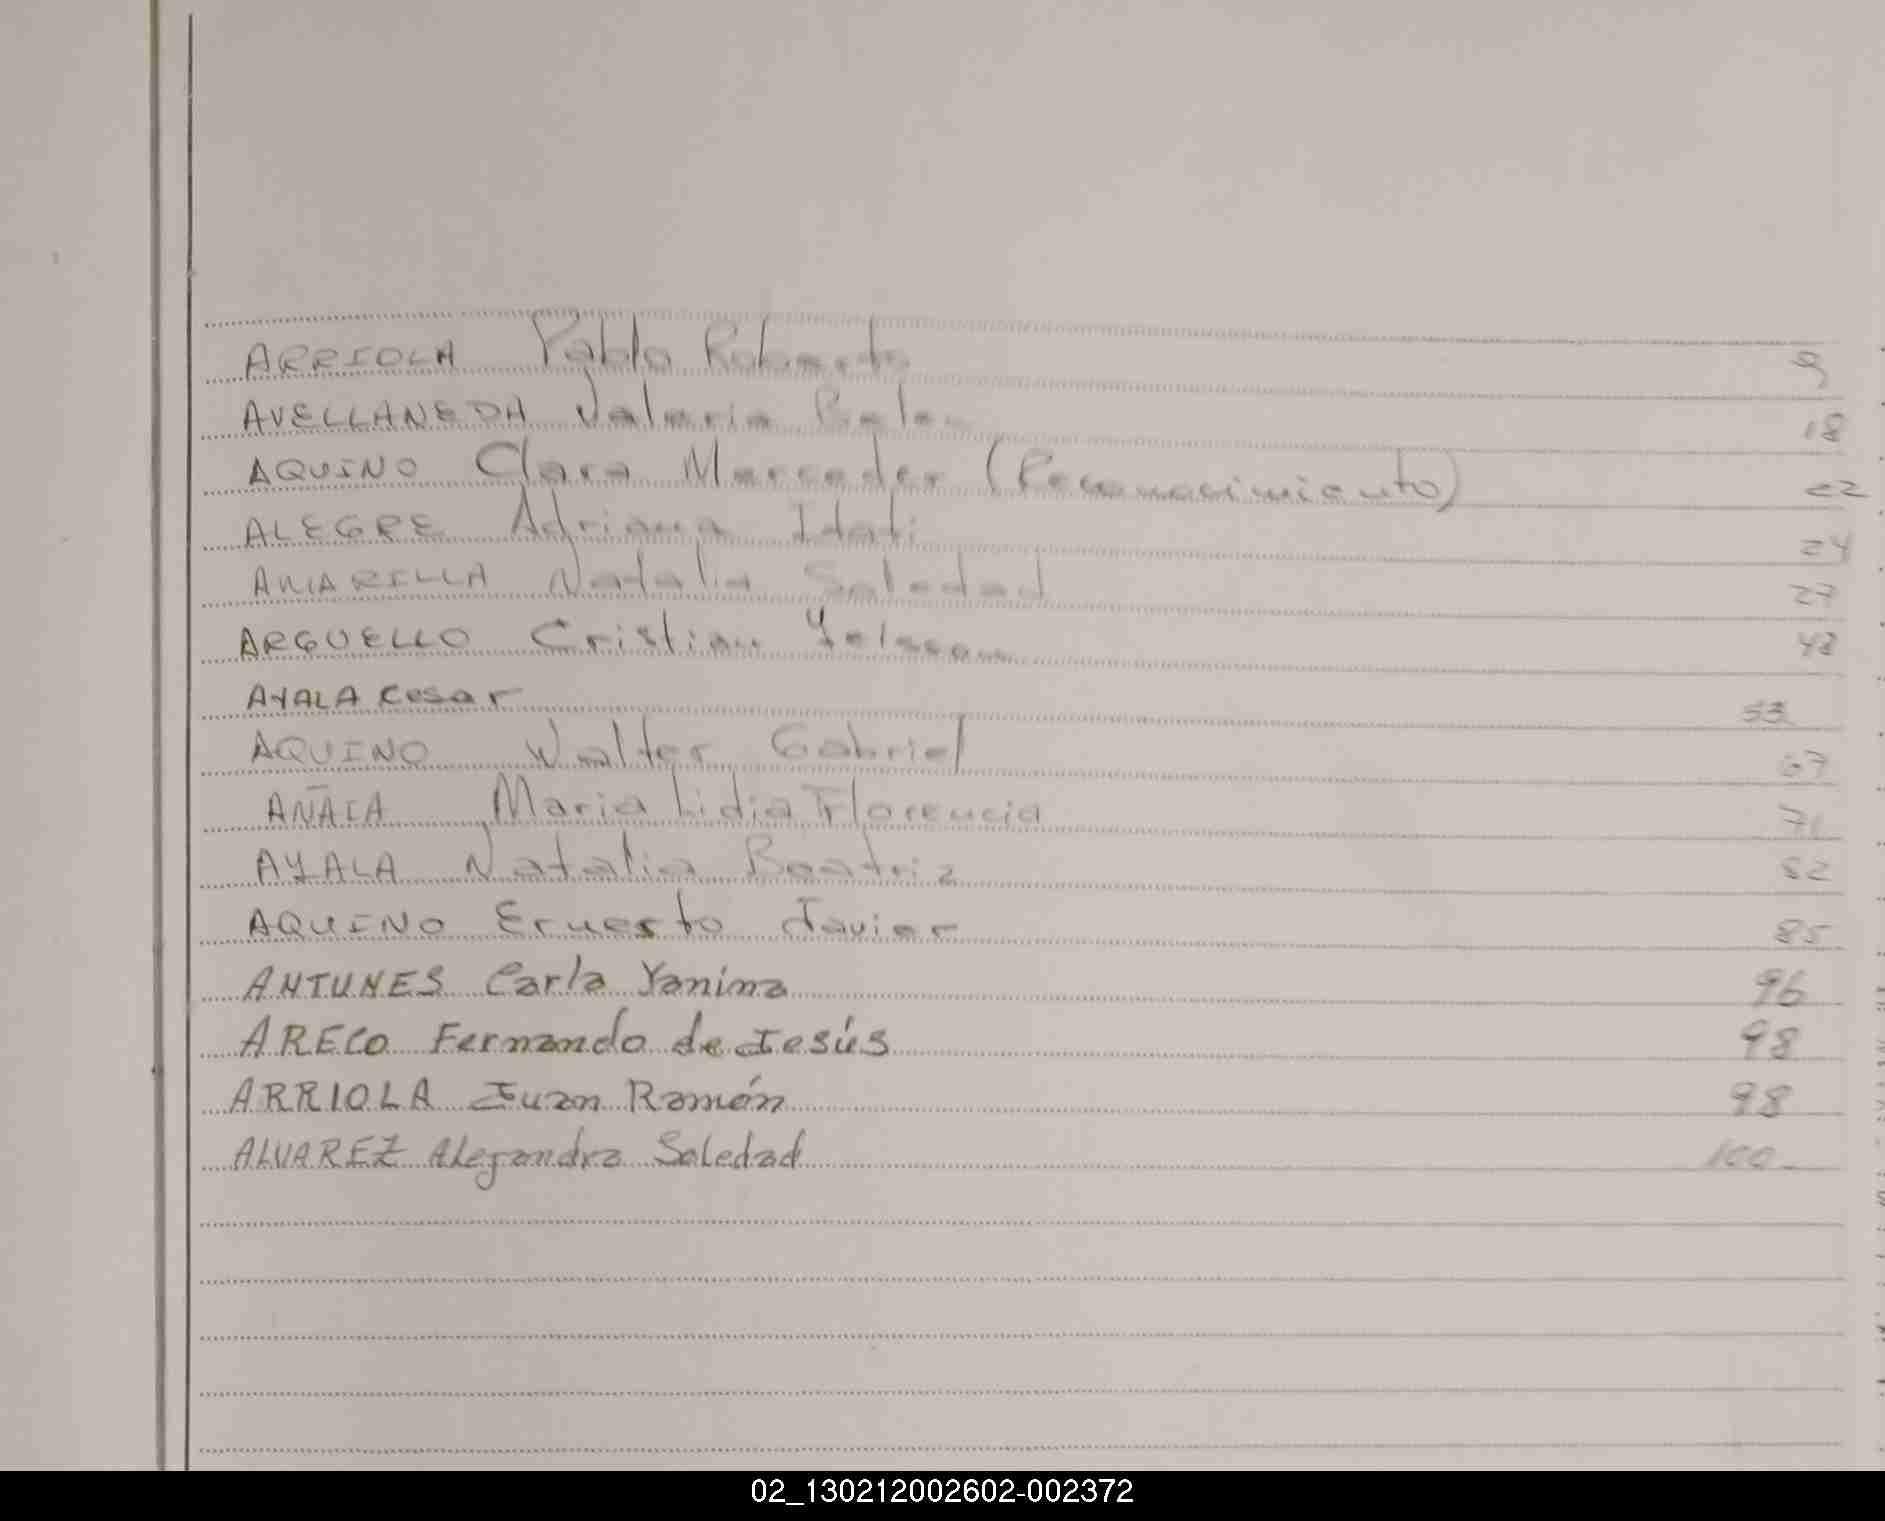 ARRIOLA Pablo Roberto 9
AVELLANEDA Valeria Belen 18
AQUINO Clara Mercedes (Reconocimiento) 22
ALEGRE Adriana Itati 24
AMARILLA Natalia Soledad 27
ARGUELLO Cristian 48
AYALA Cesar 53
AQUINO Walter Gabriel 67
AÑAIA Maria Lidia Florencia 71
AYALA Natalia Beatriz 82
AQUINO Ernesto Javier 85
ANTUNES Carla Yanina 96
ARECO Fernando de Jesús 98
ARRIOLA Juan Ramón 98
ALVAREZ Alejandra Soledad 100
02_130212002602-002372